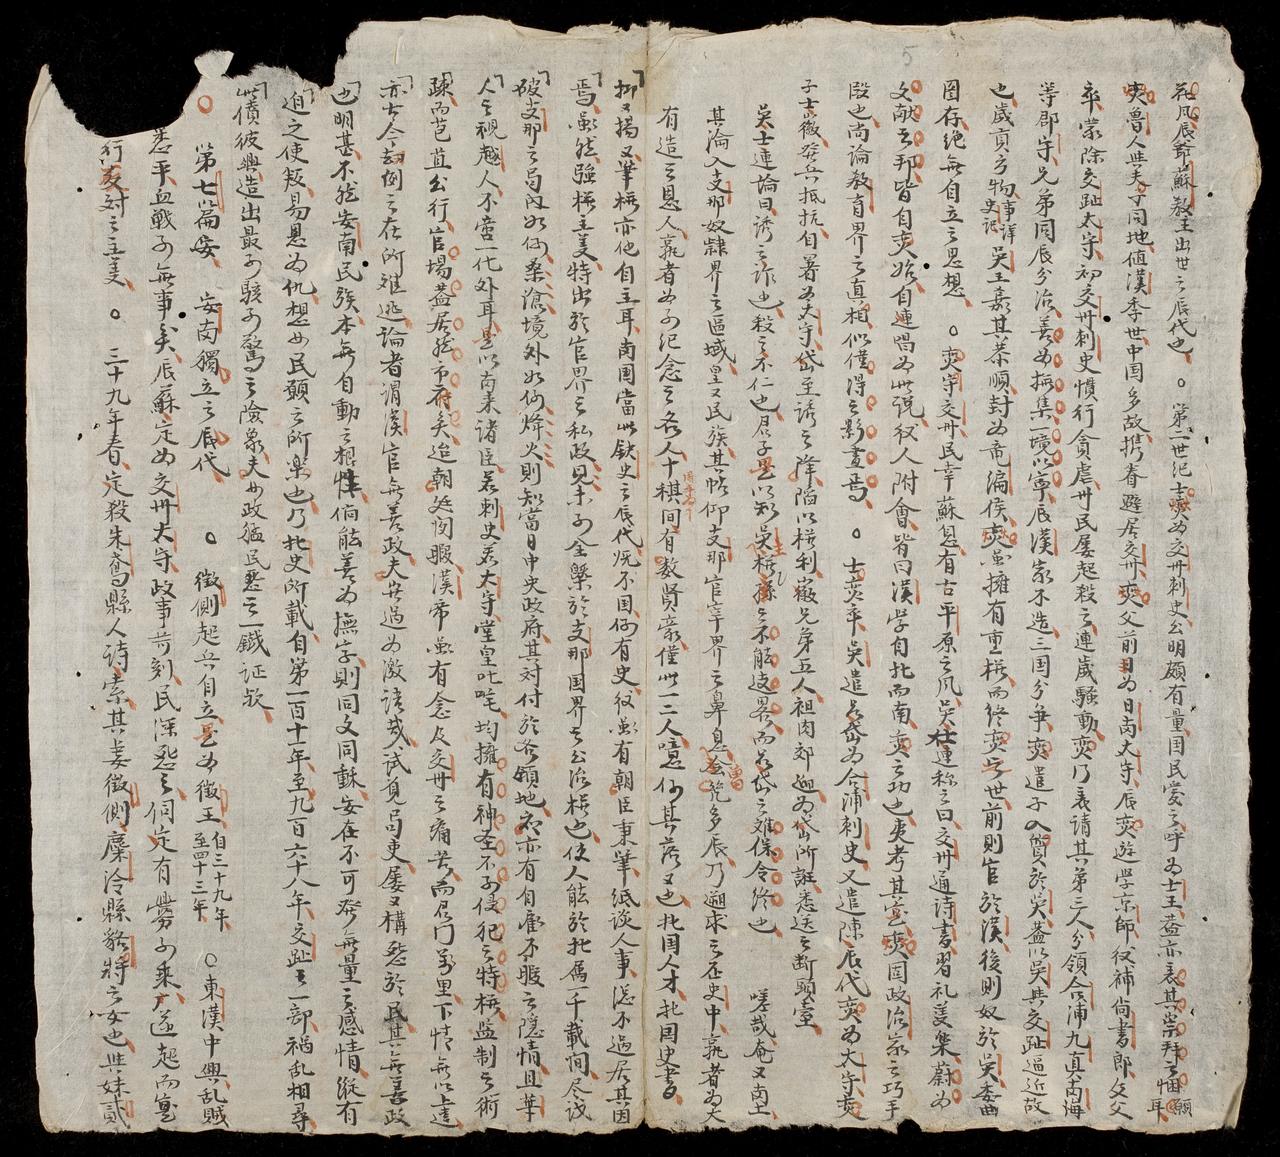 在風辰爺蘇教主出世之辰代也 ○第二世紀士爕為交州刺史公明頗有量国民愛之呼為士王葢亦表其崇拜之悃願耳
爕魯人與夫子同地值漢季世中国多故携眷避居交州爕父前日為日南太守辰爕遊学京師伩補尚書郎父
卒蒙除交趾太守初交州刺史慣行貪虐州民屡起殺之連歲騷動爕乃表請其弟三人分領合浦九真南海
等郡守兄弟同辰分治善為撫集一境以寧辰漢家不造三国分争爕遣子入質於吳葢以吳與交趾逼近故
也歲貢方物事詳史記吳王嘉其恭順封為竜編侯爕虽擁有重権而終爕之世前則官於漢後則奴於吳委曲
图存絶無自立之思想 ○爕守交州民幸蘇息有古平原之风吳士連称之曰交州通詩書習礼楽蔚為
文献之邦皆自爕始自連唱為此説伩人附會皆曰漢学自北而南爕之功也夷考其意爕国政治家之巧手
段也尚論教育界之真相似僅得之影畫焉 ○士爕卒吳遣呂岱為合浦刺史又遣陳辰代爕為太守爕
子士徽發兵抵抗自署為太守岱至誘之降陷以権利徽兄弟五人袒肉郊迎為岱所誑悉送之断頭臺
吳士連論曰誘之詐也殺之不仁也君子是以知吳主権孫之不能遠畧而呂岱之难保令終也 嗟哉奄又南土
其淪入支那奴隷界之區域皇又民族其帖仰支那官宰界之鼻息曾幾多辰乃遡求之在史中孰者為大
有造之恩人孰者為可紀念之名人十棋间有数賢豪僅此一二人噫何其落又也北国人才北国史書
抑又揚又筆権亦他自主耳南国當此鉄史之辰代既不国何有史伩虽有朝臣秉筆紙談人事湿不過居其因
焉虽然強権主義特出於官界之私政見未可全槩於支那国界之公治権也使人能於北属一千載间尽설
破支那之局内如何桑滄境外如何烽火則知當日中央政府其対付於各領地者亦有自雇不暇之隱情且華
人之視越人不啻一化外耳是以南来諸臣若刺史若太守堂皇叱咤均擁有神圣不可侵犯之特権监制之術
疎而苞苴公行官場葢居然市府矣迨朝廷閑暇漢帝虽有念及交州之痛苦而君门万里下情無以上達
亦古今刧例之在所难逃論者謂漢官無善政夫豈過為激語哉試覓局吏屡又構怨於民其無善政
也明甚不然安南民族本無自動之根性倘能善為撫字則同文同稣安在不可發無量之感情縱有
迫之使叛易恩為仇想如民願之所楽也乃北史所載自第一百十一年至九百六十八年交趾之一部祸乱相尋
此債彼興造出最可駭可驚之險象夫如政猛民惡之一鐵证欤
○第七篇 安南獨立之辰代 ○徵側起兵自立是為徵王自三十九年至四十三年 ○東漢中興乱贼
悉平血戦可無事矣辰蘇定為交州太守政事苛刻民深怨之伺定有釁可乘六遂起而寔
行反対之主義 ○三十九年春定殺朱鳶縣人詩索其妻徵側麋泠縣貉将之女也與妹貳